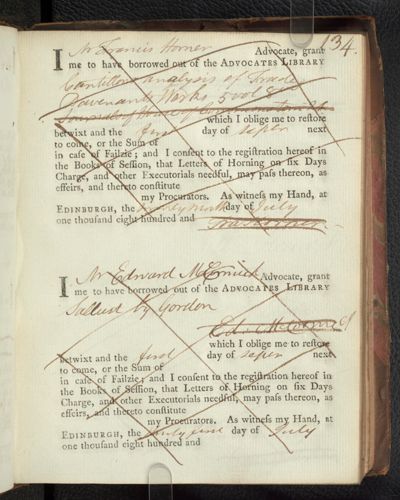 134.
I Mr Francis Horner Advocate, grant
me to have borrowed out of the ADVOCATES LIBRARY
Cantillons analysis of Trade
Davenants Works, 5 vol 8
which I oblige me to reſtore
betwixt and the first day of Septr next
to come, or the Sum of
in caſe of Failzie; and I conſent to the regiſtration hereof in
the Books of Seſſion, that Letters of Horning on ſix Days
Charge, and other Executorials needful, may paſs thereon, as
effeirs, and thereto conſtitute
my Procurators. As witneſs my Hand, at
EDINBURGH, the twenty ninth day of July
one thouſand eight hundred and
Fra: Horner.
I Mr Edward McCormick Advocate, grant
me to have borrowed out of the ADVOCATES LIBRARY
Sallust by Gordon
Ed. McCormick
which I oblige me to reſtore
betwixt and the first day of Septr next
to come, or the Sum of
in caſe of Failzie; and I conſent to the regiſtration hereof in
the Books of Seſſion, that Letters of Horning on ſix Days
Charge, and other Executorials needful, may paſs thereon, as
effeirs, and thereto conſtitute
my Procurators. As witneſs my Hand, at
EDINBURGH, the day of July
one thouſand eight hundred and